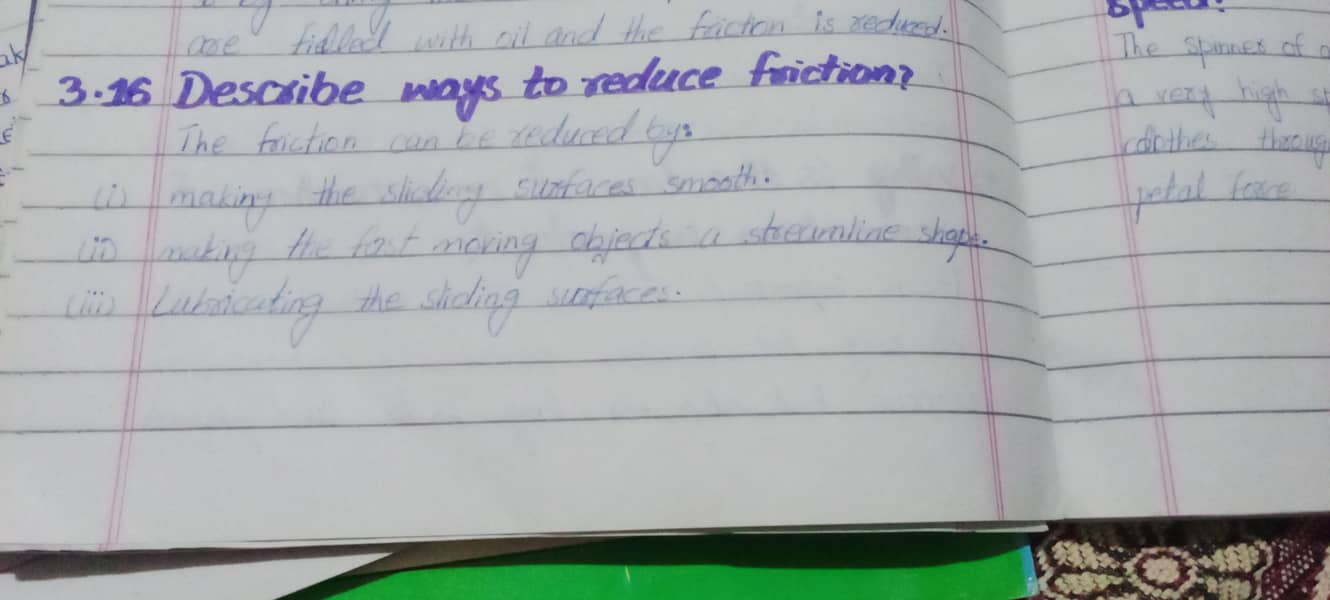 are fielled with oil and the friction is reduced.
3.16 Describe ways to reduce friction?
The friction can be reduced by:
(i) making the sliding surfaces smooth.
(ii) making the fast moving objects a streamline shape.
(iii) Lubricating the sliding surfaces.
speed?
The spinner of a
a very high
clothes through
petal force